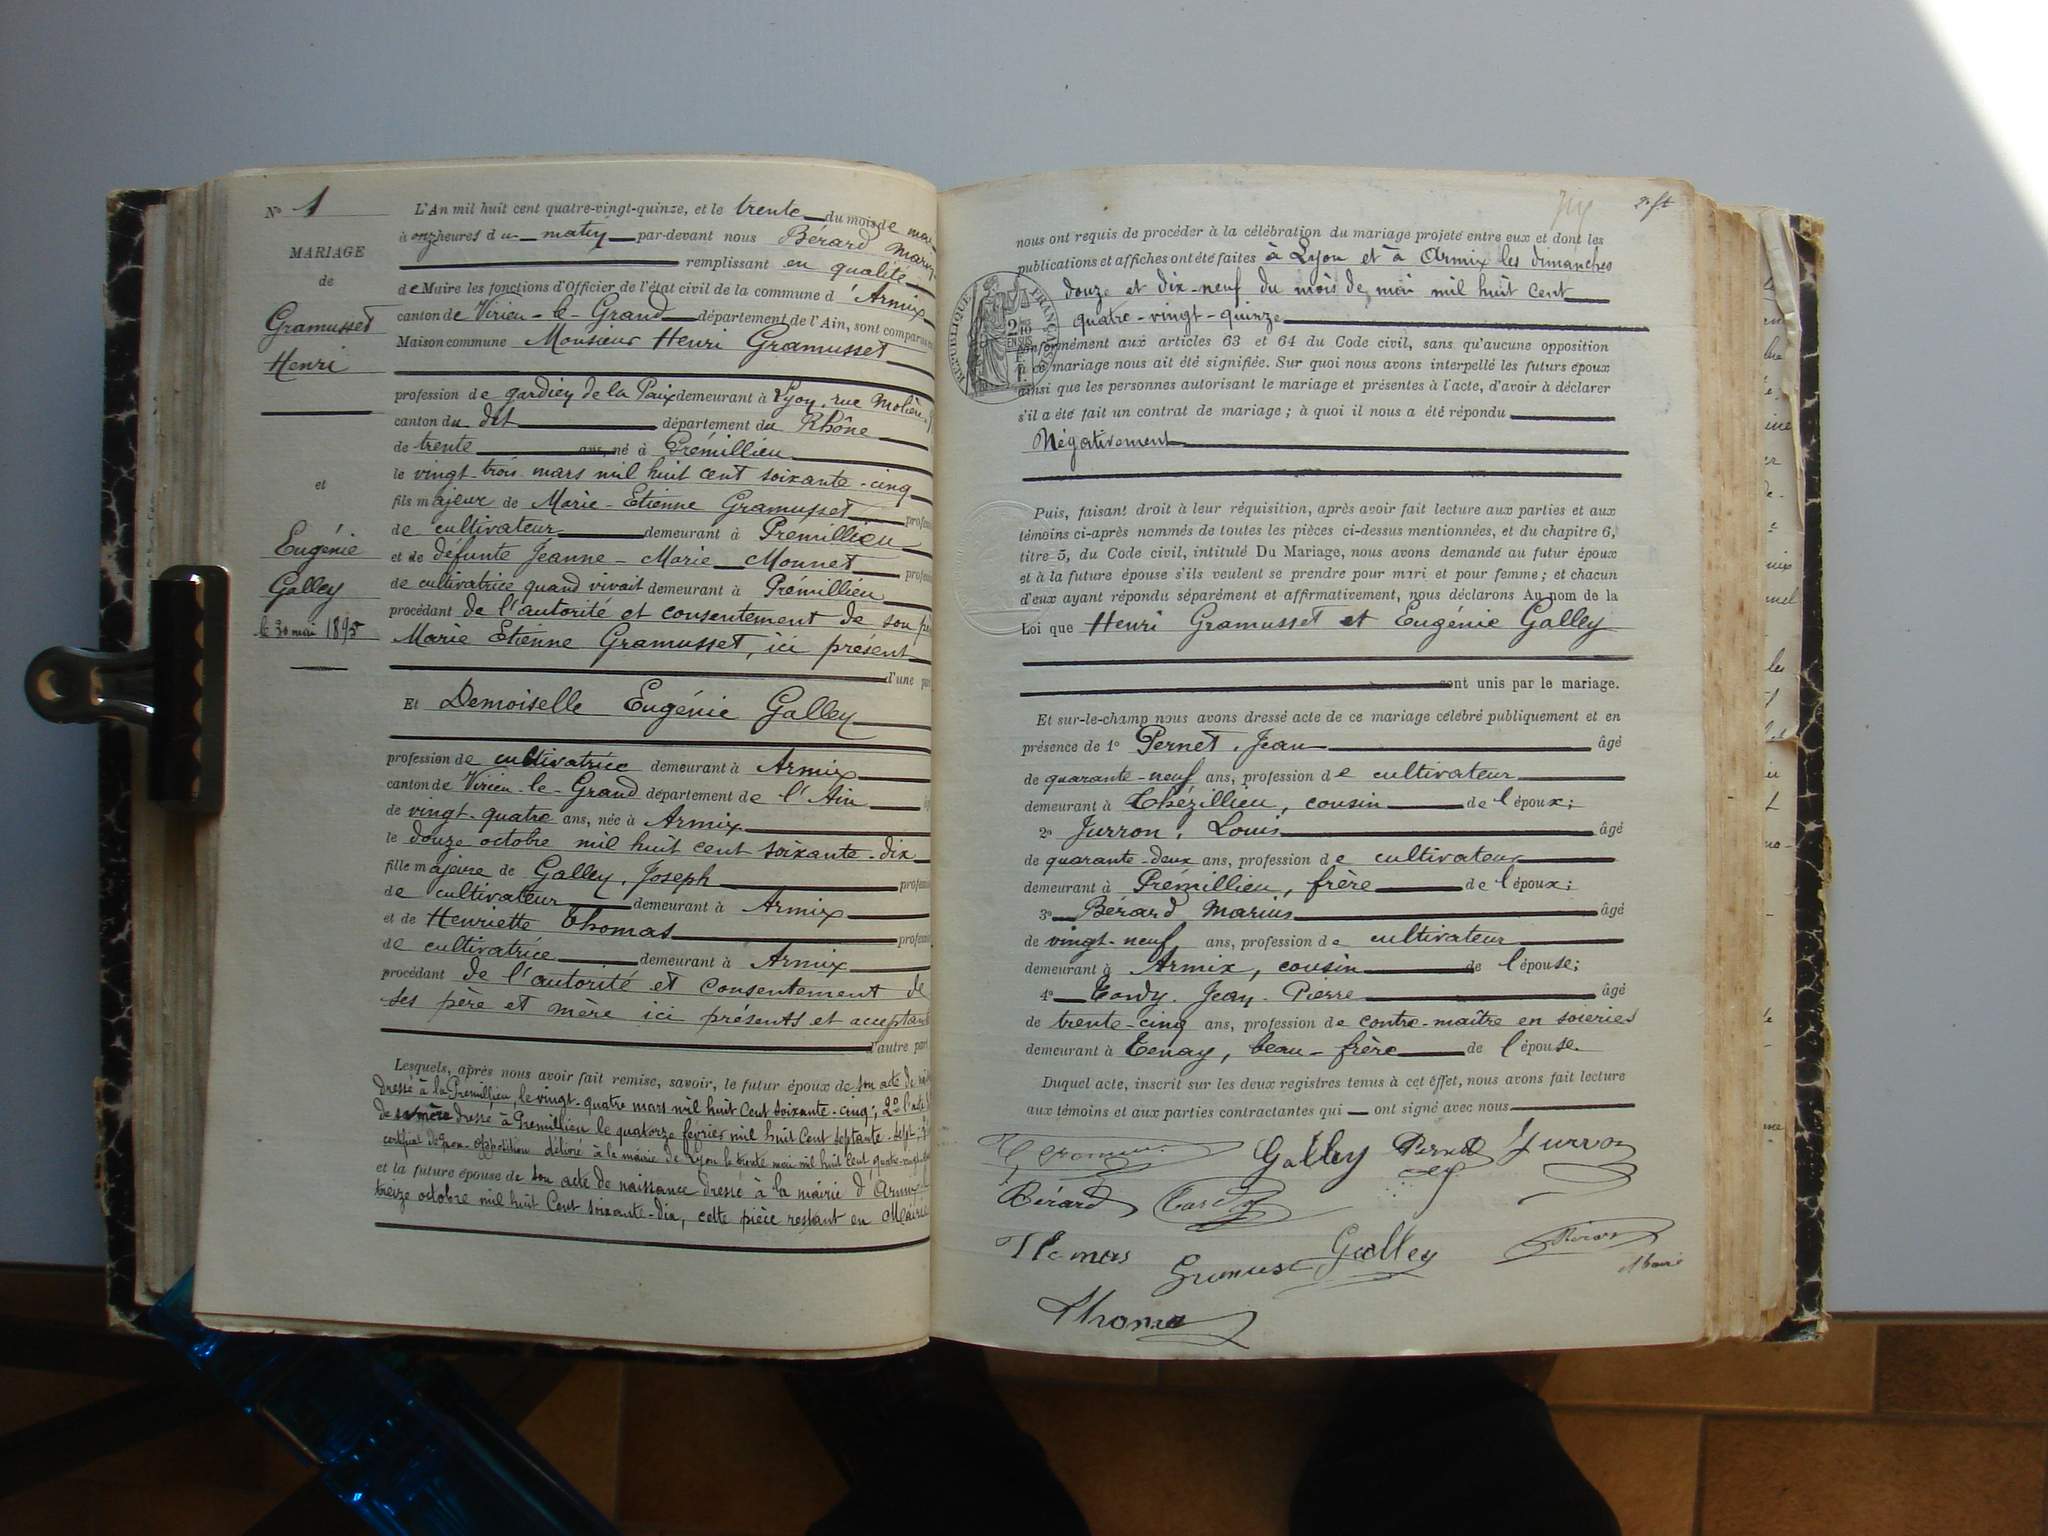 N° 1
MARIAGE
de
Gramusset
Henri
et
Eugénie
Galley
le 30 mai 1895
L'An mil huit cent quatre-vingt-quinze, et le trente du mois de mai
à onz heures du matin par-devant nous Bérard Marius
remplissant en qualité
de Maire les fonctions d'Officier de l'état civil de la commune d'Armix
canton de Virieu-le-Grand département de l'Ain, sont comparus en
Maison commune Monsieur Henri Gramusset
profession de gardien de la Paix demeurant à Lyon, rue Molière
canton du dit département du Rhône
de trente ans, né à Prémillieu
le vingt-trois mars mil huit cent soixante-cinq
fils majeur de Marie-Etienne Gramusset profes
de cultivateur demeurant à Prémillieu
et de défunte Jeanne-Marie Monnet profes
de cultivatrice quand vivait demeurant à Prémillieu
procédant de l'autorité et consentement de son père
Marie Etienne Gramusset, ici présent
d'une part
Et Demoiselle Eugénie Galley
profession de cultivatrice demeurant à Armix
canton de Virieu-le-Grand département de l'Ain
de vingt-quatre ans, née à Armix
le douze octobre mil huit cent soixante-dix
fille majeure de Galley, Joseph profess
de cultivateur demeurant à Armix
et de Henriette Thomas profess
de cultivatrice demeurant à Armix
procédant de l'autorité et consentement de
ses père et mère ici présents et acceptants
d'autre part
Lesquels, après nous avoir fait remise, savoir, le futur époux de son acte de
dressé à la Prémillieu, le vingt-quatre mars mil huit cent soixante-cinq; 2° l'acte
de sa mère dressé à Prémillieu le quatorze février mil huit cent septante-sept;
certificat de non-opposition délivré à la mairie de Lyon le trente mai mil huit cent quatre-vingt
et la future épouse de son acte de naissance dressé à la mairie d'Armix
treize octobre mil huit cent soixante-dix, cette pièce restant en Mairie
nous ont requis de procéder à la célébration du mariage projeté entre eux et dont les
publications et affiches ont été faites à Lyon et à Armix les dimanches
douze et dix-neuf du mois de mai mil huit cent
quatre-vingt-quinze
RÉPUBLIQUE FRANÇAISE
2/10 EN SUS
conformément aux articles 63 et 64 du Code civil, sans qu'aucune opposition
à ce mariage nous ait été signifiée. Sur quoi nous avons interpellé les futurs époux
ainsi que les personnes autorisant le mariage et présentes à l'acte, d'avoir à déclarer
s'il a été fait un contrat de mariage; à quoi il nous a été répondu
Négativement
Puis, faisant droit à leur réquisition, après avoir fait lecture aux parties et aux
témoins ci-après nommés de toutes les pièces ci-dessus mentionnées, et du chapitre 6,
titre 5, du Code civil, intitulé Du Mariage, nous avons demandé au futur époux
et à la future épouse s'ils veulent se prendre pour mari et pour femme; et chacun
d'eux ayant répondu séparément et affirmativement, nous déclarons Au nom de la
Loi que Henri Gramusset et Eugénie Galley
sont unis par le mariage.
Et sur-le-champ nous avons dressé acte de ce mariage célébré publiquement et en
présence de 1° Pernet, Jean âgé
de quarante-neuf ans, profession de cultivateur
demeurant à Thézillieu, cousin de l'époux;
2° Jurron, Louis âgé
de quarante-deux ans, profession de cultivateur
demeurant à Prémillieu, frère de l'époux;
3° Bérard, Marius âgé
de vingt-neuf ans, profession de cultivateur
demeurant à Armix, cousin de l'épouse;
4° Tardy, Jean-Pierre âgé
de trente-cinq ans, profession de contre-maître en soieries
demeurant à Tenay, beau-frère de l'épouse.
Duquel acte, inscrit sur les deux registres tenus à cet effet, nous avons fait lecture
aux témoins et aux parties contractantes qui ont signé avec nous
Galley Pernet Jurron
Bérard Tardy
Thomas Gramusset Galley
Thomas